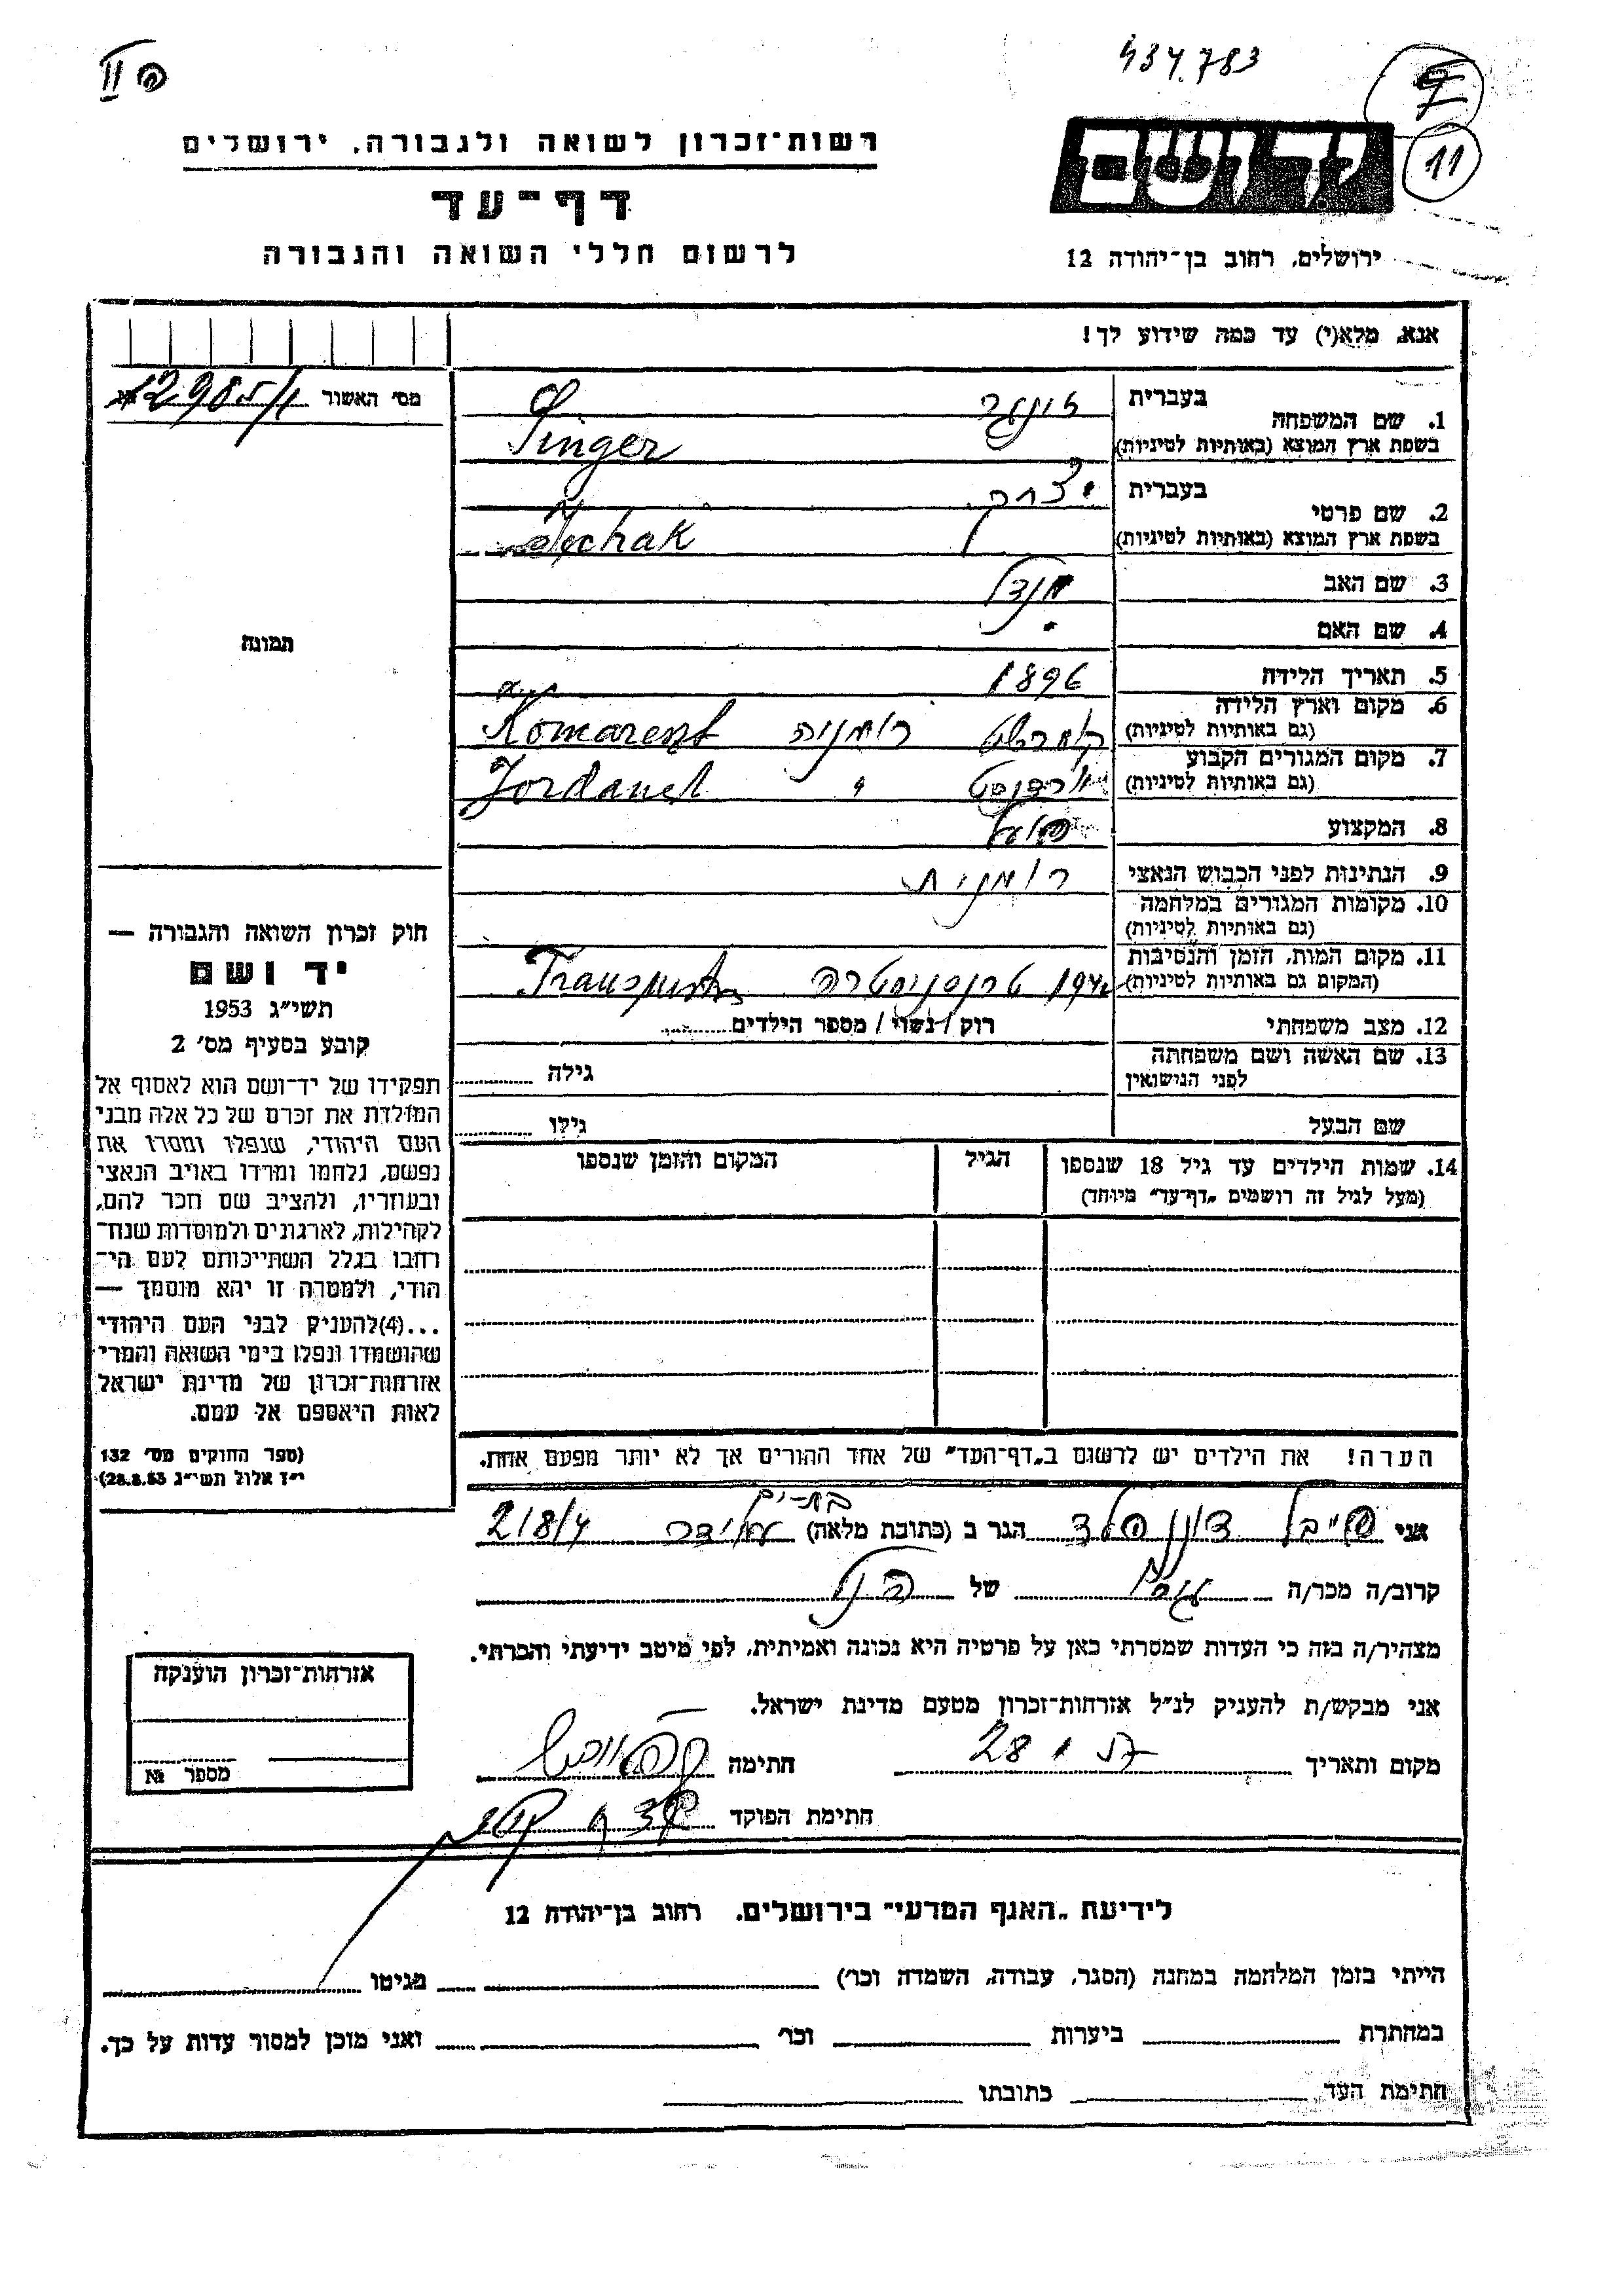 434.783
II פ
11
רשות־זכרון לשואה ולגבורה, ירושלים
דף־עד
לרשום חללי השואה והגבורה
יד ושם
ירושלים, רחוב בן־יהודה 12
אנא, מלא(י) עד כמה שידוע לך!
מס' האשור 12985/1
1. שם המשפחה
בעברית זינגר
בשפת ארץ המוצא (באותיות לטיניות) Singer
2. שם פרטי
בעברית יצחק
בשפת ארץ המוצא (באותיות לטיניות)
3. שם האב מנדל
4. שם האם
5. תאריך הלידה 1896
6. מקום וארץ הלידה
(גם באותיות לטיניות) קומרשט רומניה Komarest
7. מקום המגורים הקבוע
(גם באותיות לטיניות) יורדנסט " Jordanest
8. המקצוע
9. הנתינות לפני הכבוש הנאצי רומנית
10. מקומות המגורים במלחמה
(גם באותיות לטיניות)
11. מקום המות, הזמן והנסיבות
(המקום גם באותיות לטיניות) טרנסניסטרה
12. מצב משפחתי רוק / נשוי / מספר הילדים
13. שם האשה ושם משפחתה
לפני הנישואין גילה
שם הבעל גילו
14. שמות הילדים עד גיל 18 שנספו הגיל המקום והזמן שנספו
(מעל לגיל זה רושמים „דף־עד" מיוחד)
הערה! את הילדים יש לרשום ב„דף־העד" של אחד ההורים אך לא יותר מפעם אחת.
תמונה
חוק זכרון השואה והגבורה —
יד ושם
תשי"ג 1953
קובע בסעיף מס' 2
תפקידו של יד־ושם הוא לאסוף אל
המולדת את זכרם של כל אלה מבני
העם היהודי, שנפלו ומסרו את
נפשם, נלחמו ומרדו באויב הנאצי
ובעוזריו, ולהציב שם וזכר להם,
לקהילות, לארגונים ולמוסדות שנח־
רבו בגלל השתייכותם לעם הי־
הודי, ולמטרה זו יהא מוסמך —
...(4)להעניק לבני העם היהודי
שהושמדו ונפלו בימי השואה והמרי
אזרחות־זכרון של מדינת ישראל
לאות היאספם אל עמם.
(ספר החוקים מס' 132
י"ד אלול תשי"ג 28.8.53)
בת-ים
אני פייבל זוננפלד הגר ב (כתובת מלאה) 218/4
קרוב/ה מכר/ה של
מצהיר/ה בזה כי העדות שמסרתי כאן על פרטיה היא נכונה ואמיתית, לפי מיטב ידיעתי והכרתי.
אני מבקש/ת להעניק לנ"ל אזרחות־זכרון מטעם מדינת ישראל.
מקום ותאריך 28 חתימה
חתימת הפוקד
אזרחות־זכרון הוענקה
מספר №
לידיעת „האגף המדעי" בירושלים. רחוב בן־יהודה 12
הייתי בזמן המלחמה במחנה (הסגר, עבודה, השמדה וכו') בגיטו
במחתרת ביערות וכו' ואני מוכן למסור עדות על כך.
חתימת העד כתובתו